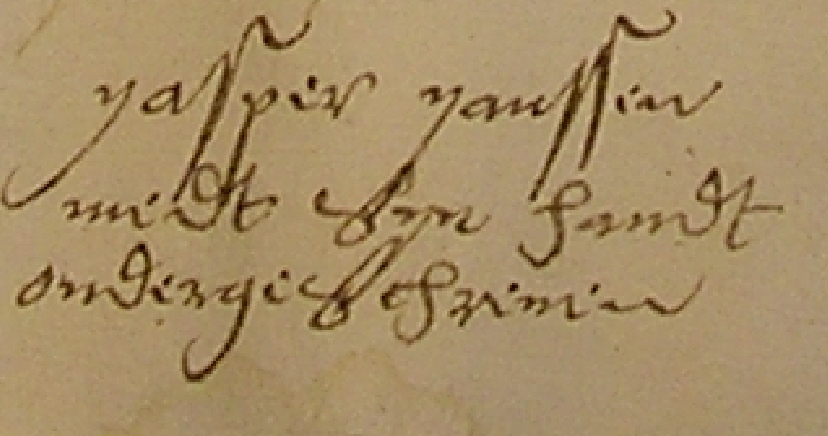 yasper yanssen
medt syn handt
ondergeschreven